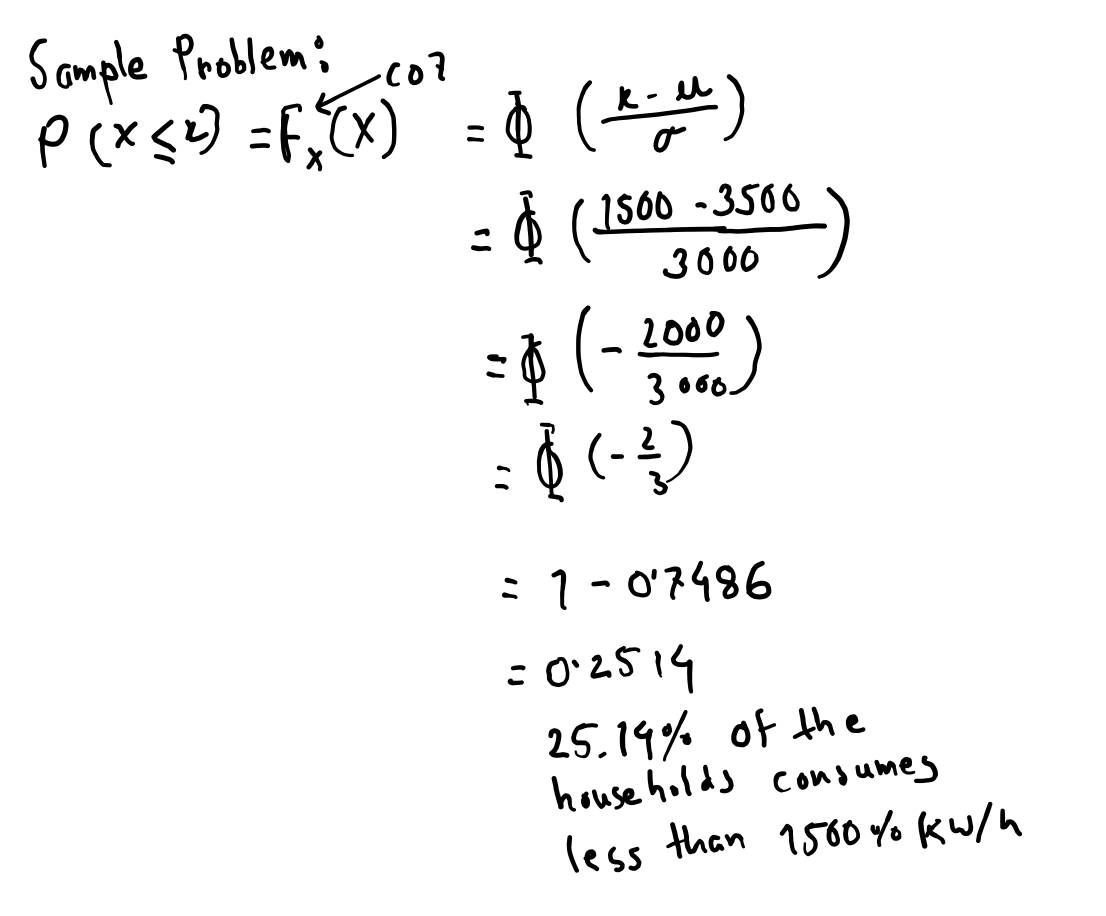 Sample Problem:
CDF
P(X ≤ x) = F_X(X) = Φ((x - μ)/σ)
= Φ((1500 - 3500)/3000)
= Φ(-2000/3000)
= Φ(-2/3)
= 1 - 0.7486
= 0.2514
25.14% of the
households consumes
less than 1500% kw/h